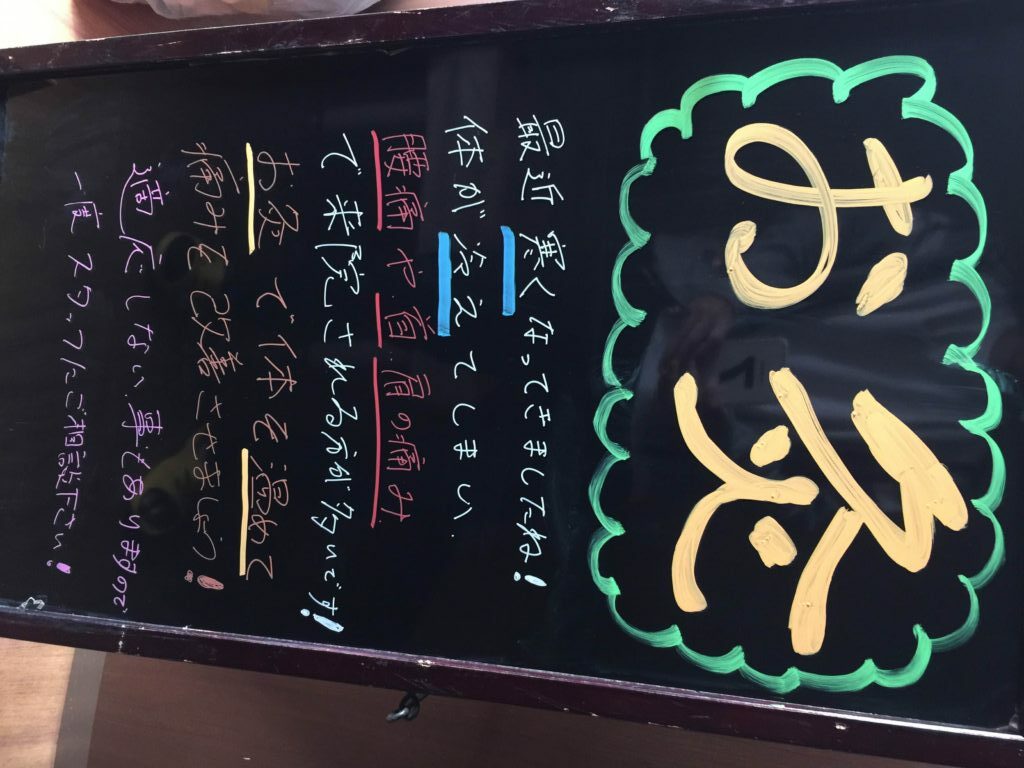 お灸
最近寒くなってきましたね!
体が冷えてしまい、
腰痛や首・肩の痛み
で来院される方が多いです!
お灸で体を温めて
痛みを改善させましょう!
適応しない事もあり〼ので
一度スタッフにご相談下さい!